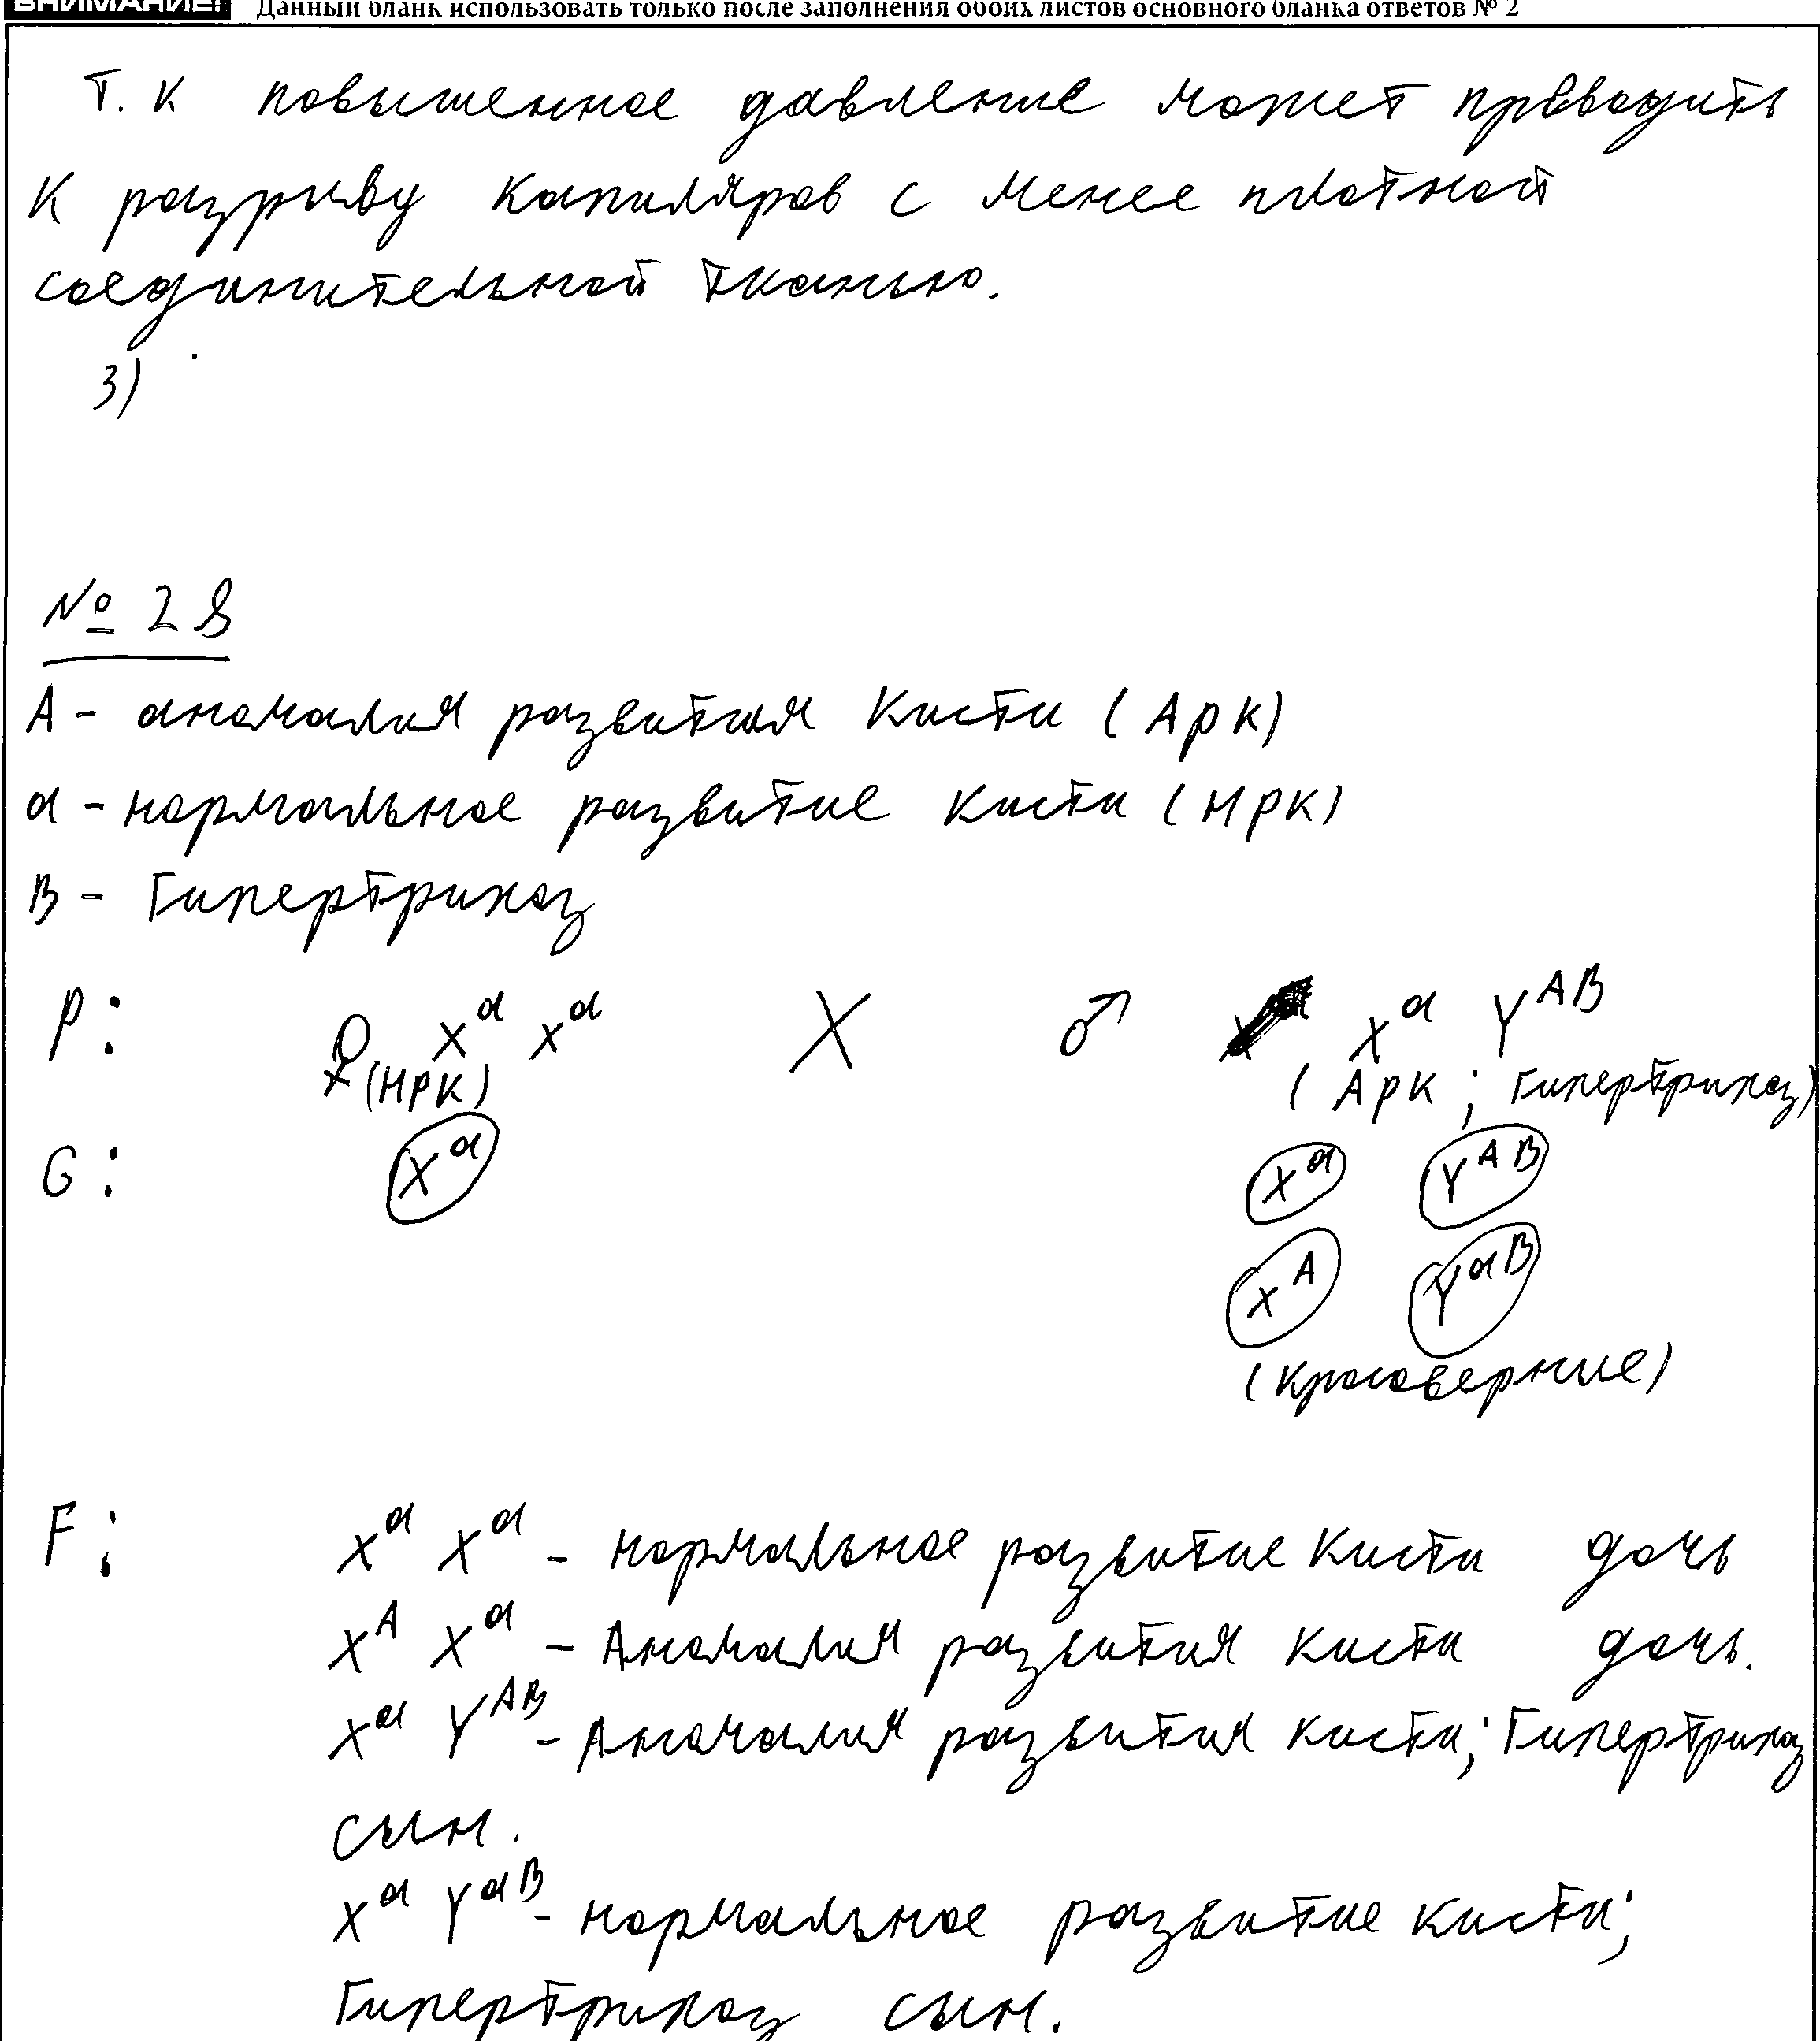 ВНИМАНИЕ! Данный бланк использовать только после заполнения обоих листов основного бланка ответов № 2
Т. К повышенное давление может приводить
К разрыву капиляров с менее плотной
соединительной тканью.
3)
№ 28
А - аномалия развития Кисти (Арк)
а - нормальное развитие кисти (Нрк)
В - Гипертрихоз
P: ♀ X^a X^a X ♂ X^a Y^AB
(НРК) (Арк; Гипертрихоз)
G: X^a X^a Y^AB
X^A Y^aB
(кросоверние)
F: X^a X^a - нормальное развитие Кисти дочь
X^A X^a - Аномалия развития кисти дочь.
X^a Y^AB - Аномалия развития кисти; Гипертрихоз
сын.
X^a Y^aB - нормальное развитие кисти;
Гипертрихоз сын.